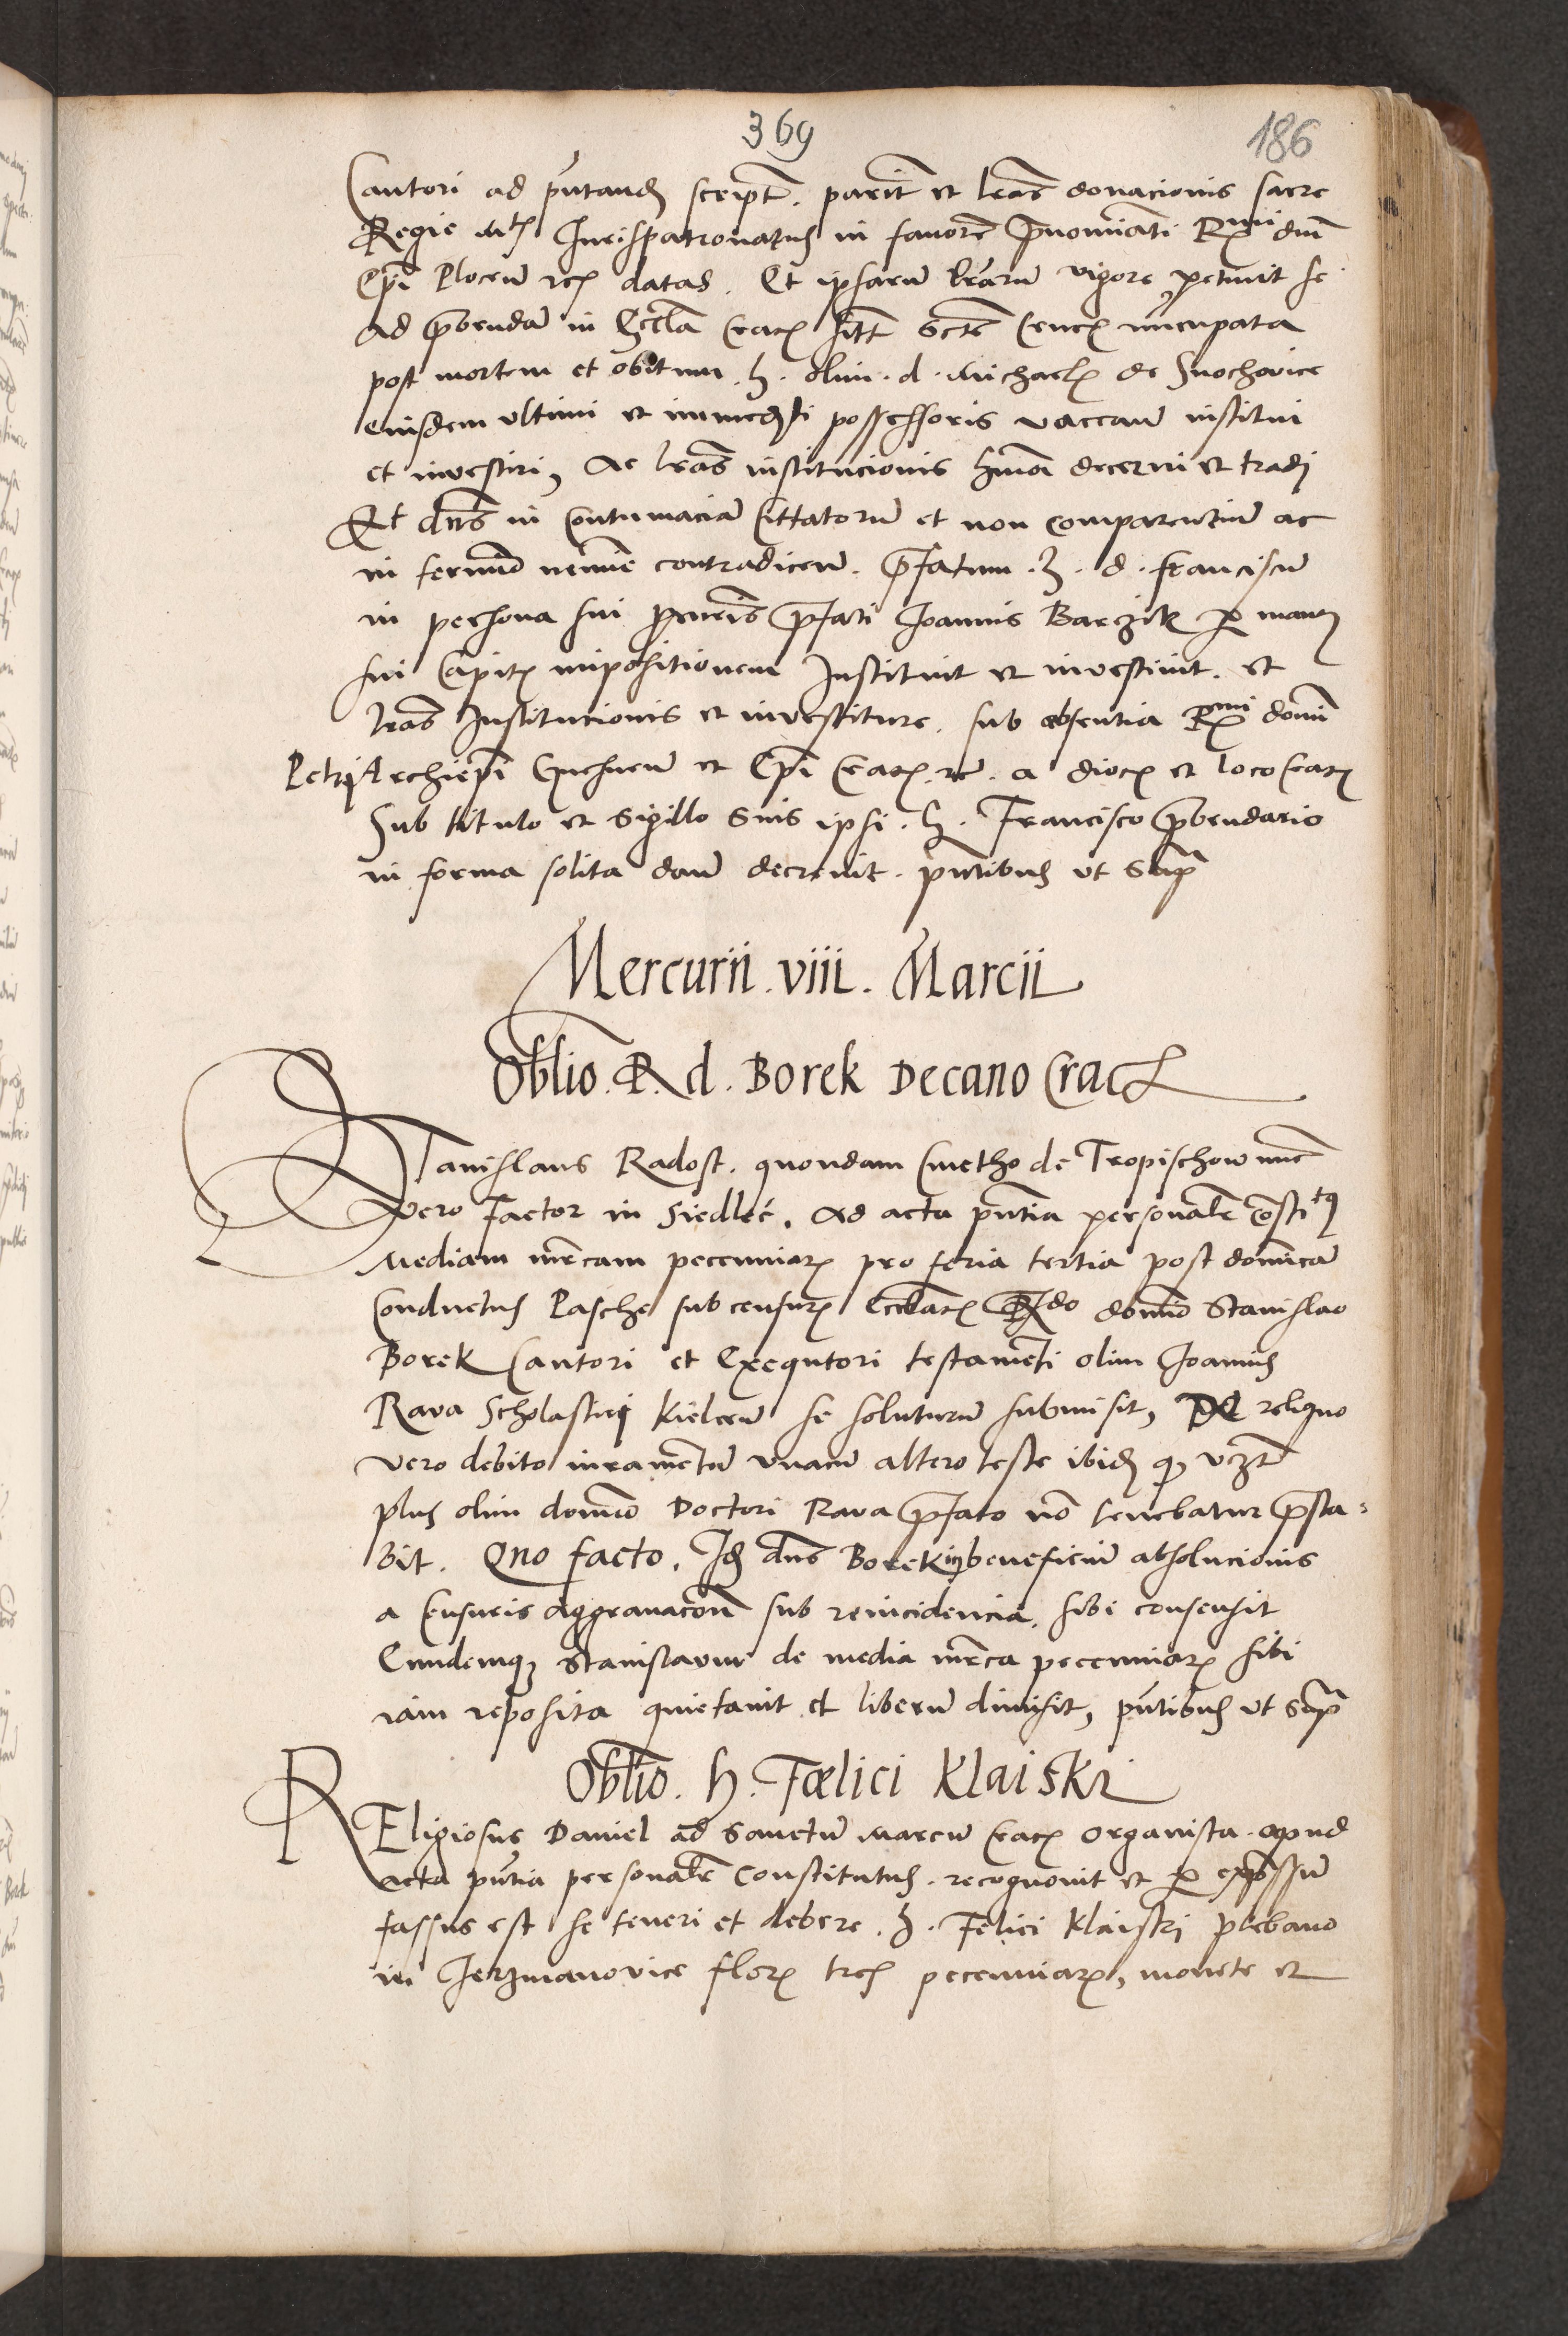 369
186
Cantori ad pñtandum script. parit et lras donacionis sacre
Regie Mtis Jurispatronatus in favorem prenominati Rmi dni
Epi Plocen. datas. Et ipsarum lrarum vigore petivit se
ad prebendam in Ecclia Crac. Sctae Crucis nuncupata
post mortem et obitum. h. olim. d. Michaelis de Snochovice
eiusdem ultimi et immediati possessoris vaccan. institui
et investiri, Ac lras institucionis decerni et tradi
Et dns in contumaciam Cittatorum et non comparentium ac
in termino nemine contradicen. Prefatum. h. d. Franciscum
in persona sui procuris prefati Joannis Barczik per manus
sui capitis impositionem Instituit et investivit. et
lras Institucionis et investiture. sub absentia Rmi domini
Petri Archiepi Gnesnen. et Epi Crac. a dioc. et loco Crac.
Sub titulo et Sigillo Suis ipsi. h. Francisco prebendario
in forma solita dan. decrevit. pntibus ut Supra
Mercurii. viii. Marcii
Oblio. R. d. Borek Decano Crac.
Stanislaus Radost. quondam Cmetho de Tropischow nunc
vero factor in Siedlec. Ad acta pntia personaliter constitutus
Mediam mrcam pecuniarum pro feria tertia post dominicam
Conductus Pasche sub censuris Eccl. Rdo domino Stanislao
Borek Cantori et Exequtori testamenti olim Joannis
Rava Scholastici Kielcen. se soluturum submisit, De reliquo
vero debito iuramentum unacum altero teste ibidem
plus olim domino Doctori Rava prefato non tenebatur presta-
bit. Quo facto. Idem dns Borek in beneficium absolucionis
a Censuris aggravacionum sub reincidencia. sibi consensit
Eundemque Stanislaum de media mrca pecuniarum sibi
iam reposita quietavit et liberum dimisit, pntibus ut Supra
Oblio. h. Fœlici Klaiski
REligiosus Daniel ad Sanctum Marcum Crac. Organista. apud
acta pntia personaliter Constitutus. recognovit et per expressum
fassus est se teneri et debere. h. Felici Klaiski plebano
in Jerzmanovice flor. tres pecuniarum, monete et